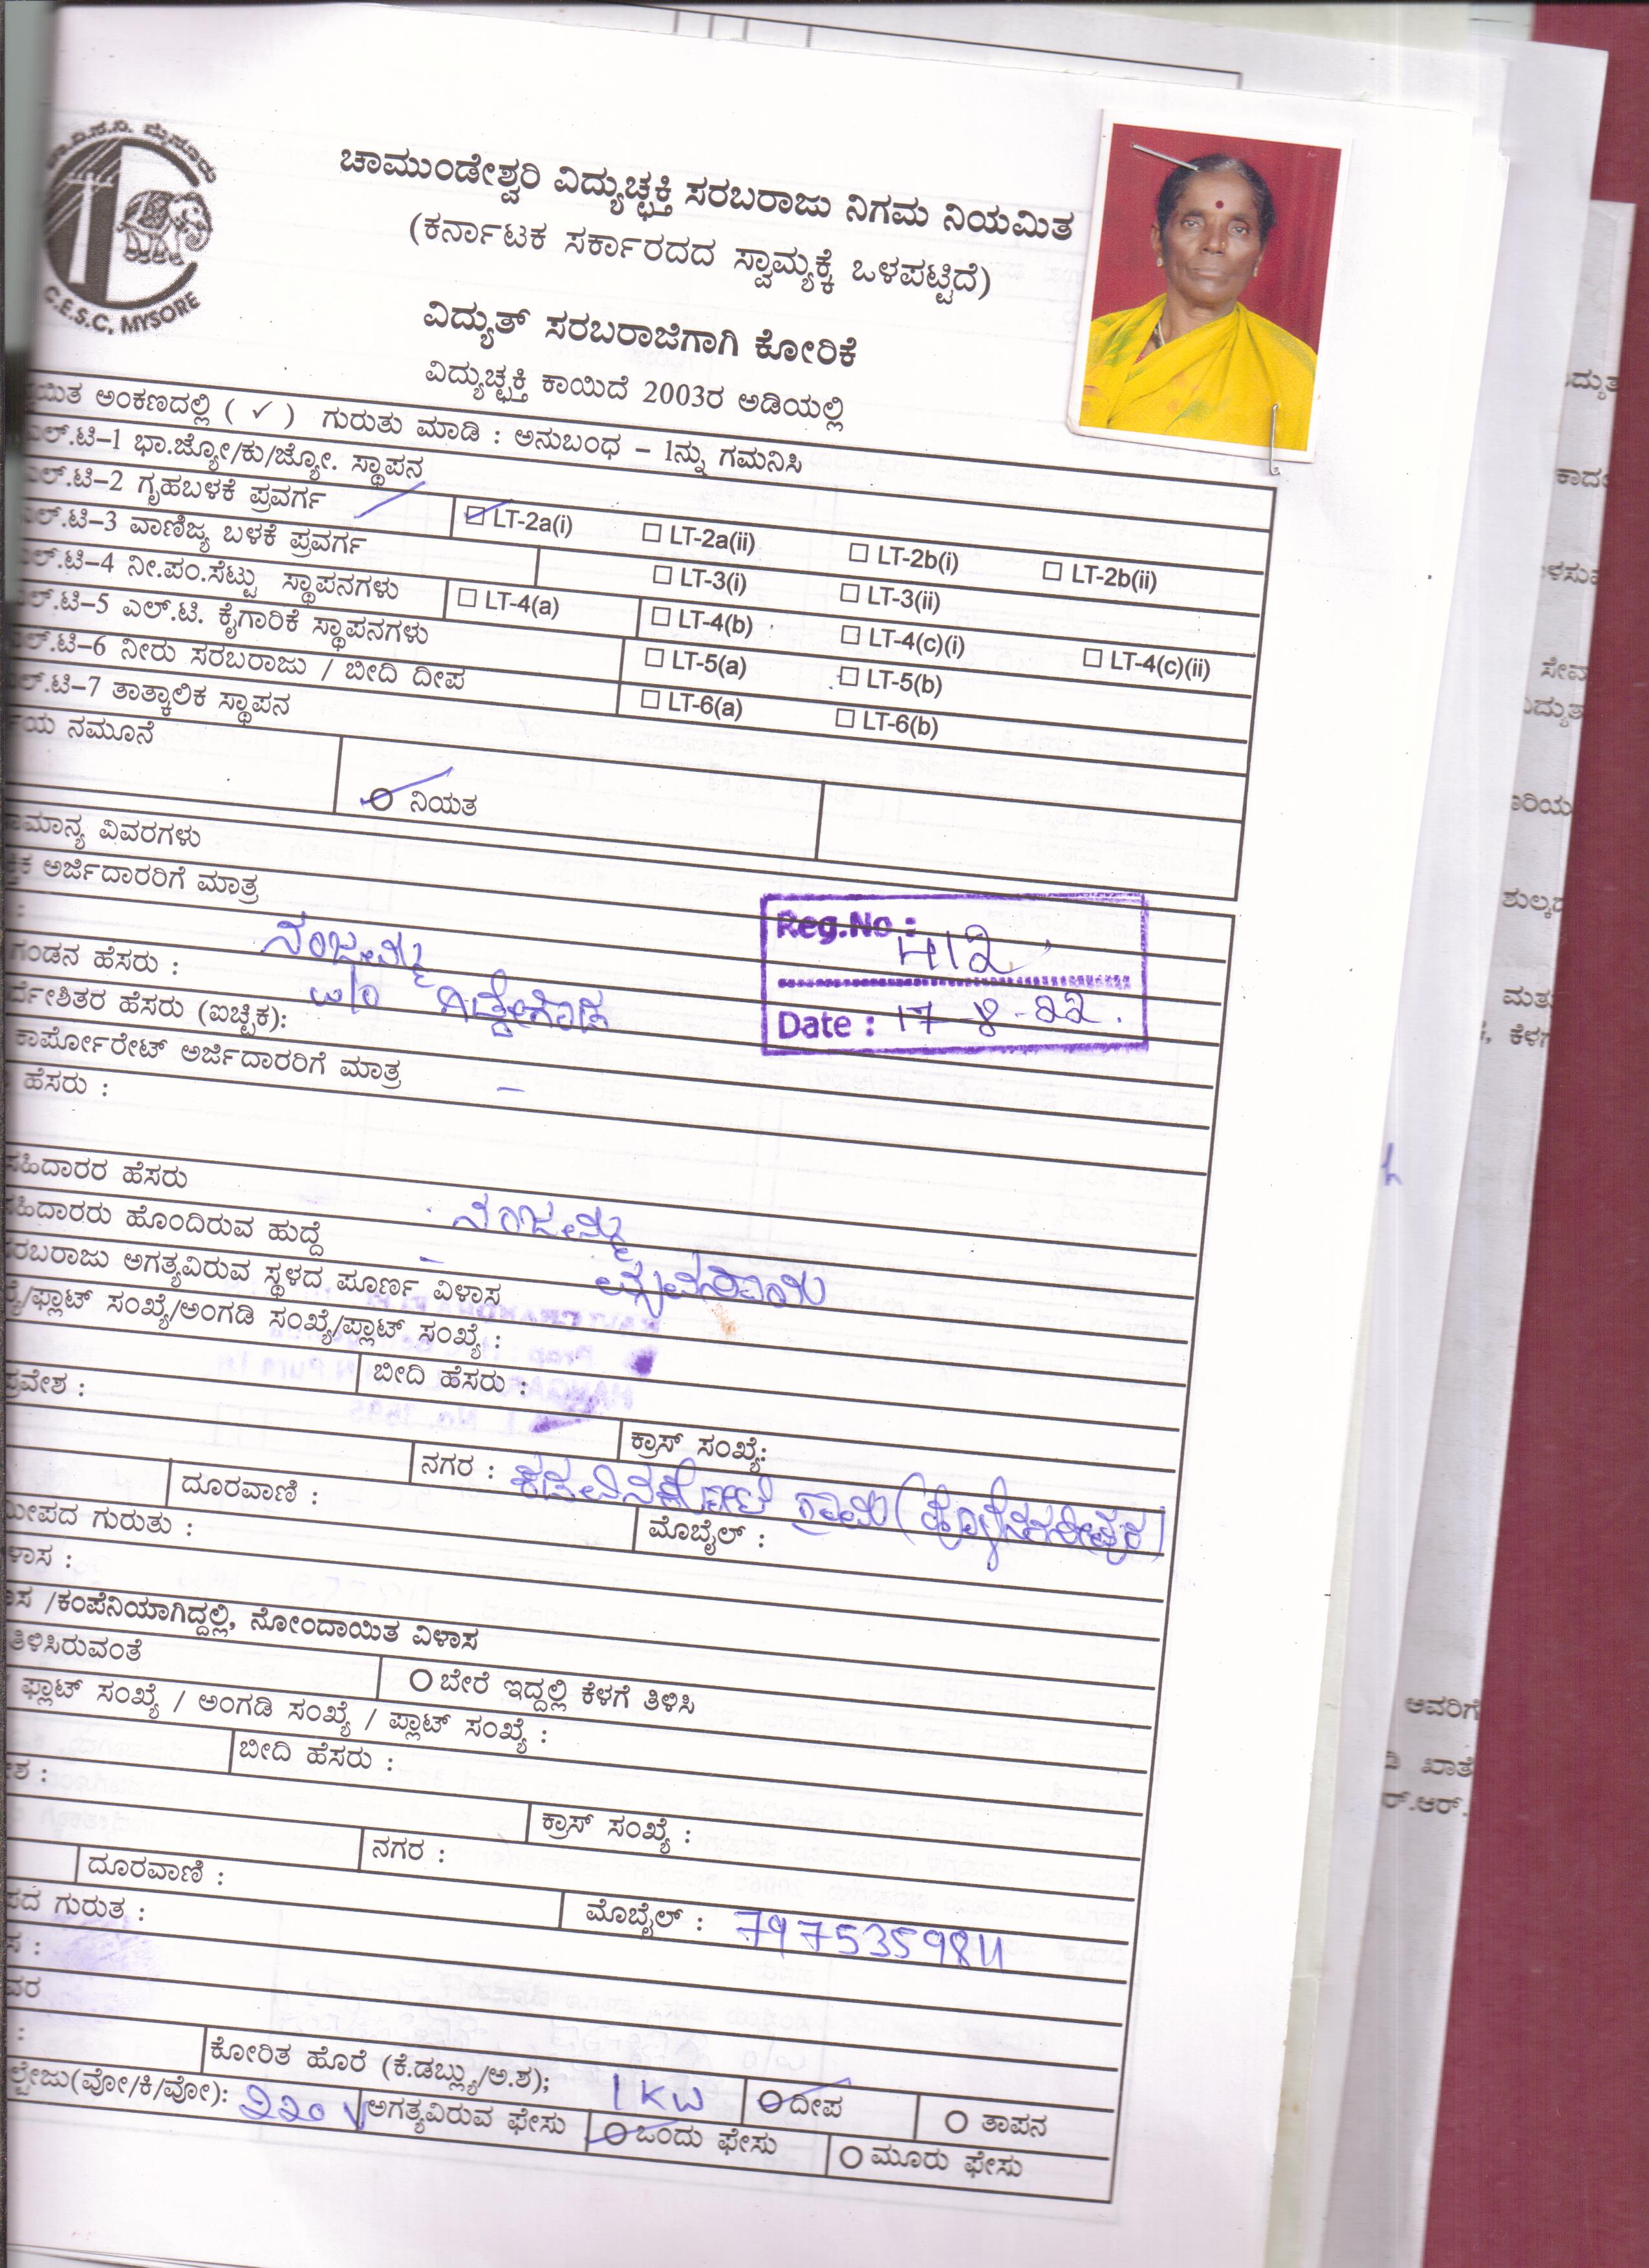 C.E.S.C, MYSORE
ಚಾಮುಂಡೇಶ್ವರಿ ವಿದ್ಯುಚ್ಛಕ್ತಿ ಸರಬರಾಜು ನಿಗಮ ನಿಯಮಿತ
(ಕರ್ನಾಟಕ ಸರ್ಕಾರದದ ಸ್ವಾಮ್ಯಕ್ಕೆ ಒಳಪಟ್ಟಿದೆ)
ವಿದ್ಯುತ್ ಸರಬರಾಜಿಗಾಗಿ ಕೋರಿಕೆ
ವಿದ್ಯುಚ್ಛಕ್ತಿ ಕಾಯಿದೆ 2003ರ ಅಡಿಯಲ್ಲಿ
ಯಿತ ಅಂಕಣದಲ್ಲಿ ( ✓ ) ಗುರುತು ಮಾಡಿ : ಅನುಬಂಧ – 1ನ್ನು ಗಮನಿಸಿ
ಎಲ್.ಟಿ–1 ಭಾ.ಜ್ಯೋ/ಕು/ಜ್ಯೋ. ಸ್ಥಾಪನ
ಎಲ್.ಟಿ–2 ಗೃಹಬಳಕೆ ಪ್ರವರ್ಗ ☑ LT-2a(i) ☐ LT-2a(ii) ☐ LT-2b(i) ☐ LT-2b(ii)
ಎಲ್.ಟಿ–3 ವಾಣಿಜ್ಯ ಬಳಕೆ ಪ್ರವರ್ಗ ☐ LT-3(i) ☐ LT-3(ii)
ಎಲ್.ಟಿ–4 ನೀ.ಪಂ.ಸೆಟ್ಟು ಸ್ಥಾಪನಗಳು ☐ LT-4(a) ☐ LT-4(b) ☐ LT-4(c)(i) ☐ LT-4(c)(ii)
ಎಲ್.ಟಿ–5 ಎಲ್.ಟಿ. ಕೈಗಾರಿಕೆ ಸ್ಥಾಪನಗಳು ☐ LT-5(a) ☐ LT-5(b)
ಎಲ್.ಟಿ–6 ನೀರು ಸರಬರಾಜು / ಬೀದಿ ದೀಪ ☐ LT-6(a) ☐ LT-6(b)
ಎಲ್.ಟಿ–7 ತಾತ್ಕಾಲಿಕ ಸ್ಥಾಪನ
ಯ ನಮೂನೆ
ನಿಯತ
ಾಮಾನ್ಯ ವಿವರಗಳು
ಕ ಅರ್ಜಿದಾರರಿಗೆ ಮಾತ್ರ
Reg.No : 412
: ನಂಜಮ್ಮ
ಗಂಡನ ಹೆಸರು : w/o ಸಿದ್ದೇಗೌಡ
Date : 17-8-22.
ರ್ದೇಶಿತರ ಹೆಸರು (ಐಚ್ಛಿಕ):
ಕಾರ್ಪೋರೇಟ್ ಅರ್ಜಿದಾರರಿಗೆ ಮಾತ್ರ
ಹೆಸರು :
ಸಹಿದಾರರ ಹೆಸರು ನಂಜಮ್ಮ
ಸಹಿದಾರರು ಹೊಂದಿರುವ ಹುದ್ದೆ
ಸರಬರಾಜು ಅಗತ್ಯವಿರುವ ಸ್ಥಳದ ಪೂರ್ಣ ವಿಳಾಸ
ಖ್ಯೆ/ಫ್ಲಾಟ್ ಸಂಖ್ಯೆ/ಅಂಗಡಿ ಸಂಖ್ಯೆ/ಪ್ಲಾಟ್ ಸಂಖ್ಯೆ :
ಬೀದಿ ಹೆಸರು :
ಪ್ರವೇಶ :
ಕ್ರಾಸ್ ಸಂಖ್ಯೆ:
ನಗರ :
ದೂರವಾಣಿ :
ಮೊಬೈಲ್ :
ಮೀಪದ ಗುರುತು :
ಳಾಸ :
ಾಸ /ಕಂಪೆನಿಯಾಗಿದ್ದಲ್ಲಿ, ನೋಂದಾಯಿತ ವಿಳಾಸ
ತಿಳಿಸಿರುವಂತೆ
ಬೇರೆ ಇದ್ದಲ್ಲಿ ಕೆಳಗೆ ತಿಳಿಸಿ
ಫ್ಲಾಟ್ ಸಂಖ್ಯೆ / ಅಂಗಡಿ ಸಂಖ್ಯೆ / ಪ್ಲಾಟ್ ಸಂಖ್ಯೆ :
ಬೀದಿ ಹೆಸರು :
ಶ :
ಕ್ರಾಸ್ ಸಂಖ್ಯೆ :
ನಗರ :
ದೂರವಾಣಿ :
ಮೊಬೈಲ್ : 797535984
ಪದ ಗುರುತ :
ಸ :
ವರ
: ಕೋರಿತ ಹೊರೆ (ಕೆ.ಡಬ್ಲ್ಯು/ಅ.ಶ); 1 KW ದೀಪ ತಾಪನ
ಲ್ಟೇಜು(ವೋ/ಕಿ/ವೋ): 220 V ಅಗತ್ಯವಿರುವ ಫೇಸು ಒಂದು ಫೇಸು ಮೂರು ಫೇಸು